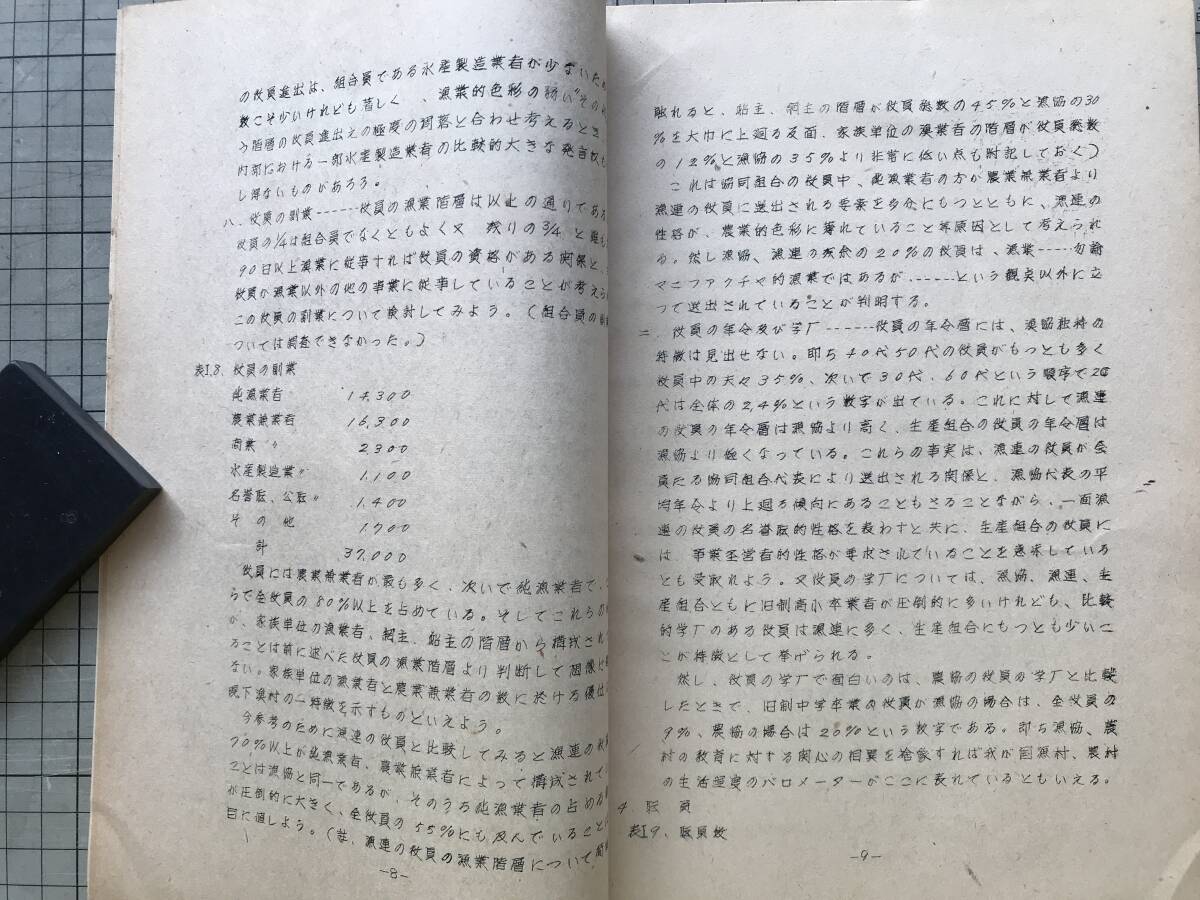 の役員進出は、組合員である水産製造業者が少ないため
数こそ少いけれども著しく、漁業的色彩の弱い
階層の役員進出えの極度の凋落と合わせ考えるとき
内部における一部水産製造業者の比較的大きな発言
し得ないものがあろう。
ハ、役員の副業------役員の漁業階層は以上の通りであ
役員の1/4は組合員でなくともよく又 残りの3/4と雖も
90日以上漁業に従事すれば役員の資格がある関係と、
役員が漁業以外の他の事業に従事していることが考えら
この役員の副業について検討してみよう。(組合員の
ついては調査できなかった。)
表I.8、役員の副業
純漁業者 14,300
農業兼業者 16,300
商業 〃 2300
水産製造業〃 1.100
名誉職、公職〃 1,400
その他 1,700
計 37,000
役員には農業兼業者が最も多く、次いで純漁業者で、
らで全役員の80%以上を占めている。そしてこれらの
が、家族単位の漁業者、網主、船主の階層から構成され
ることは前に述べた役員の漁業階層より判断して想像に
ない。家族単位の漁業者と農業兼業者の数に於ける優位
現下漁村の一特徴を示すものといえよう。
今参考のために漁連の役員と比較してみると漁連の役
90%以上が純漁業者、農業兼業者によって構成されて
ことは漁協と同一であるが、そのうち純漁業者の占める
が圧倒的に大きく、全役員の55%にも及んでいること
目に値しよう。(註、漁連の役員の漁業階層について
-8-
触れると、船主、網主の階層が役員総数の45%と漁協の30
%を大巾に上廻る反面、家族単位の漁業者の階層が役員総数
の12%と漁協の35%より非常に低い点も附記しておく)
これは協同組合の役員中、純漁業者の方が農業兼業者より
漁連の役員に選出される要素を多分にもつとともに、漁連の
性格が、農業的色彩に薄れていること等原因として考えられ
る。然し漁協、漁連の残余の20%の役員は、漁業----勿論
マニファクチャ的漁業ではあるが、-----という観点以外に立
つて選出されていることが判明する。
ニ、役員の年令及び学厂------役員の年令層には、漁協独特の
特徴は見出せない。即ち40代50代の役員がもっとも多く
役員中の夫々35%、次いで30代、60代という順序で20
代は全体の2,4%という数字が出ている。これに対して漁連
の役員の年令層は漁協より高く、生産組合の役員の年令層は
漁協より低くなっている。これらの事実は、漁連の役員が会
員たる協同組合代表により選出される関係と、漁協代表の平
均年令より上廻る傾向にあることもさることながら、一面漁
連の役員の名誉職的性格を表わすと共に、生産組合の役員に
は、事業経営者的性格が要求されていることを意味している
とも受取れよう。又役員の学厂については、漁協、漁連、生
産組合ともに旧制高小卒業者が圧倒的に多いけれども、比較
的学厂のある役員は漁連に多く、生産組合にもっとも少いこ
とが特徴として挙げられる。
然し、役員の学厂で面白いのは、農協の役員の学厂と比較
したときで、旧制中学卒業の役員が漁協の場合は、全役員の
9%、農協の場合は20%という数字である。即ち漁協、農
村の教育に対する関心の相異を捨象すれば我が国漁村、農村
の生活程度のバロメーターがここに表れているともいえる。
4 職員
表I9、職員数
-9-